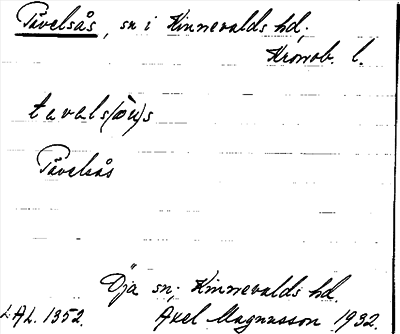 Tävelsås, sn i Kinnevalds hd,
Kronob. l.
tavals(òu)s
Tävelsås
Öja sn, Kinnevalds hd.
LAL. 1352. Axel Magnusson 1932.